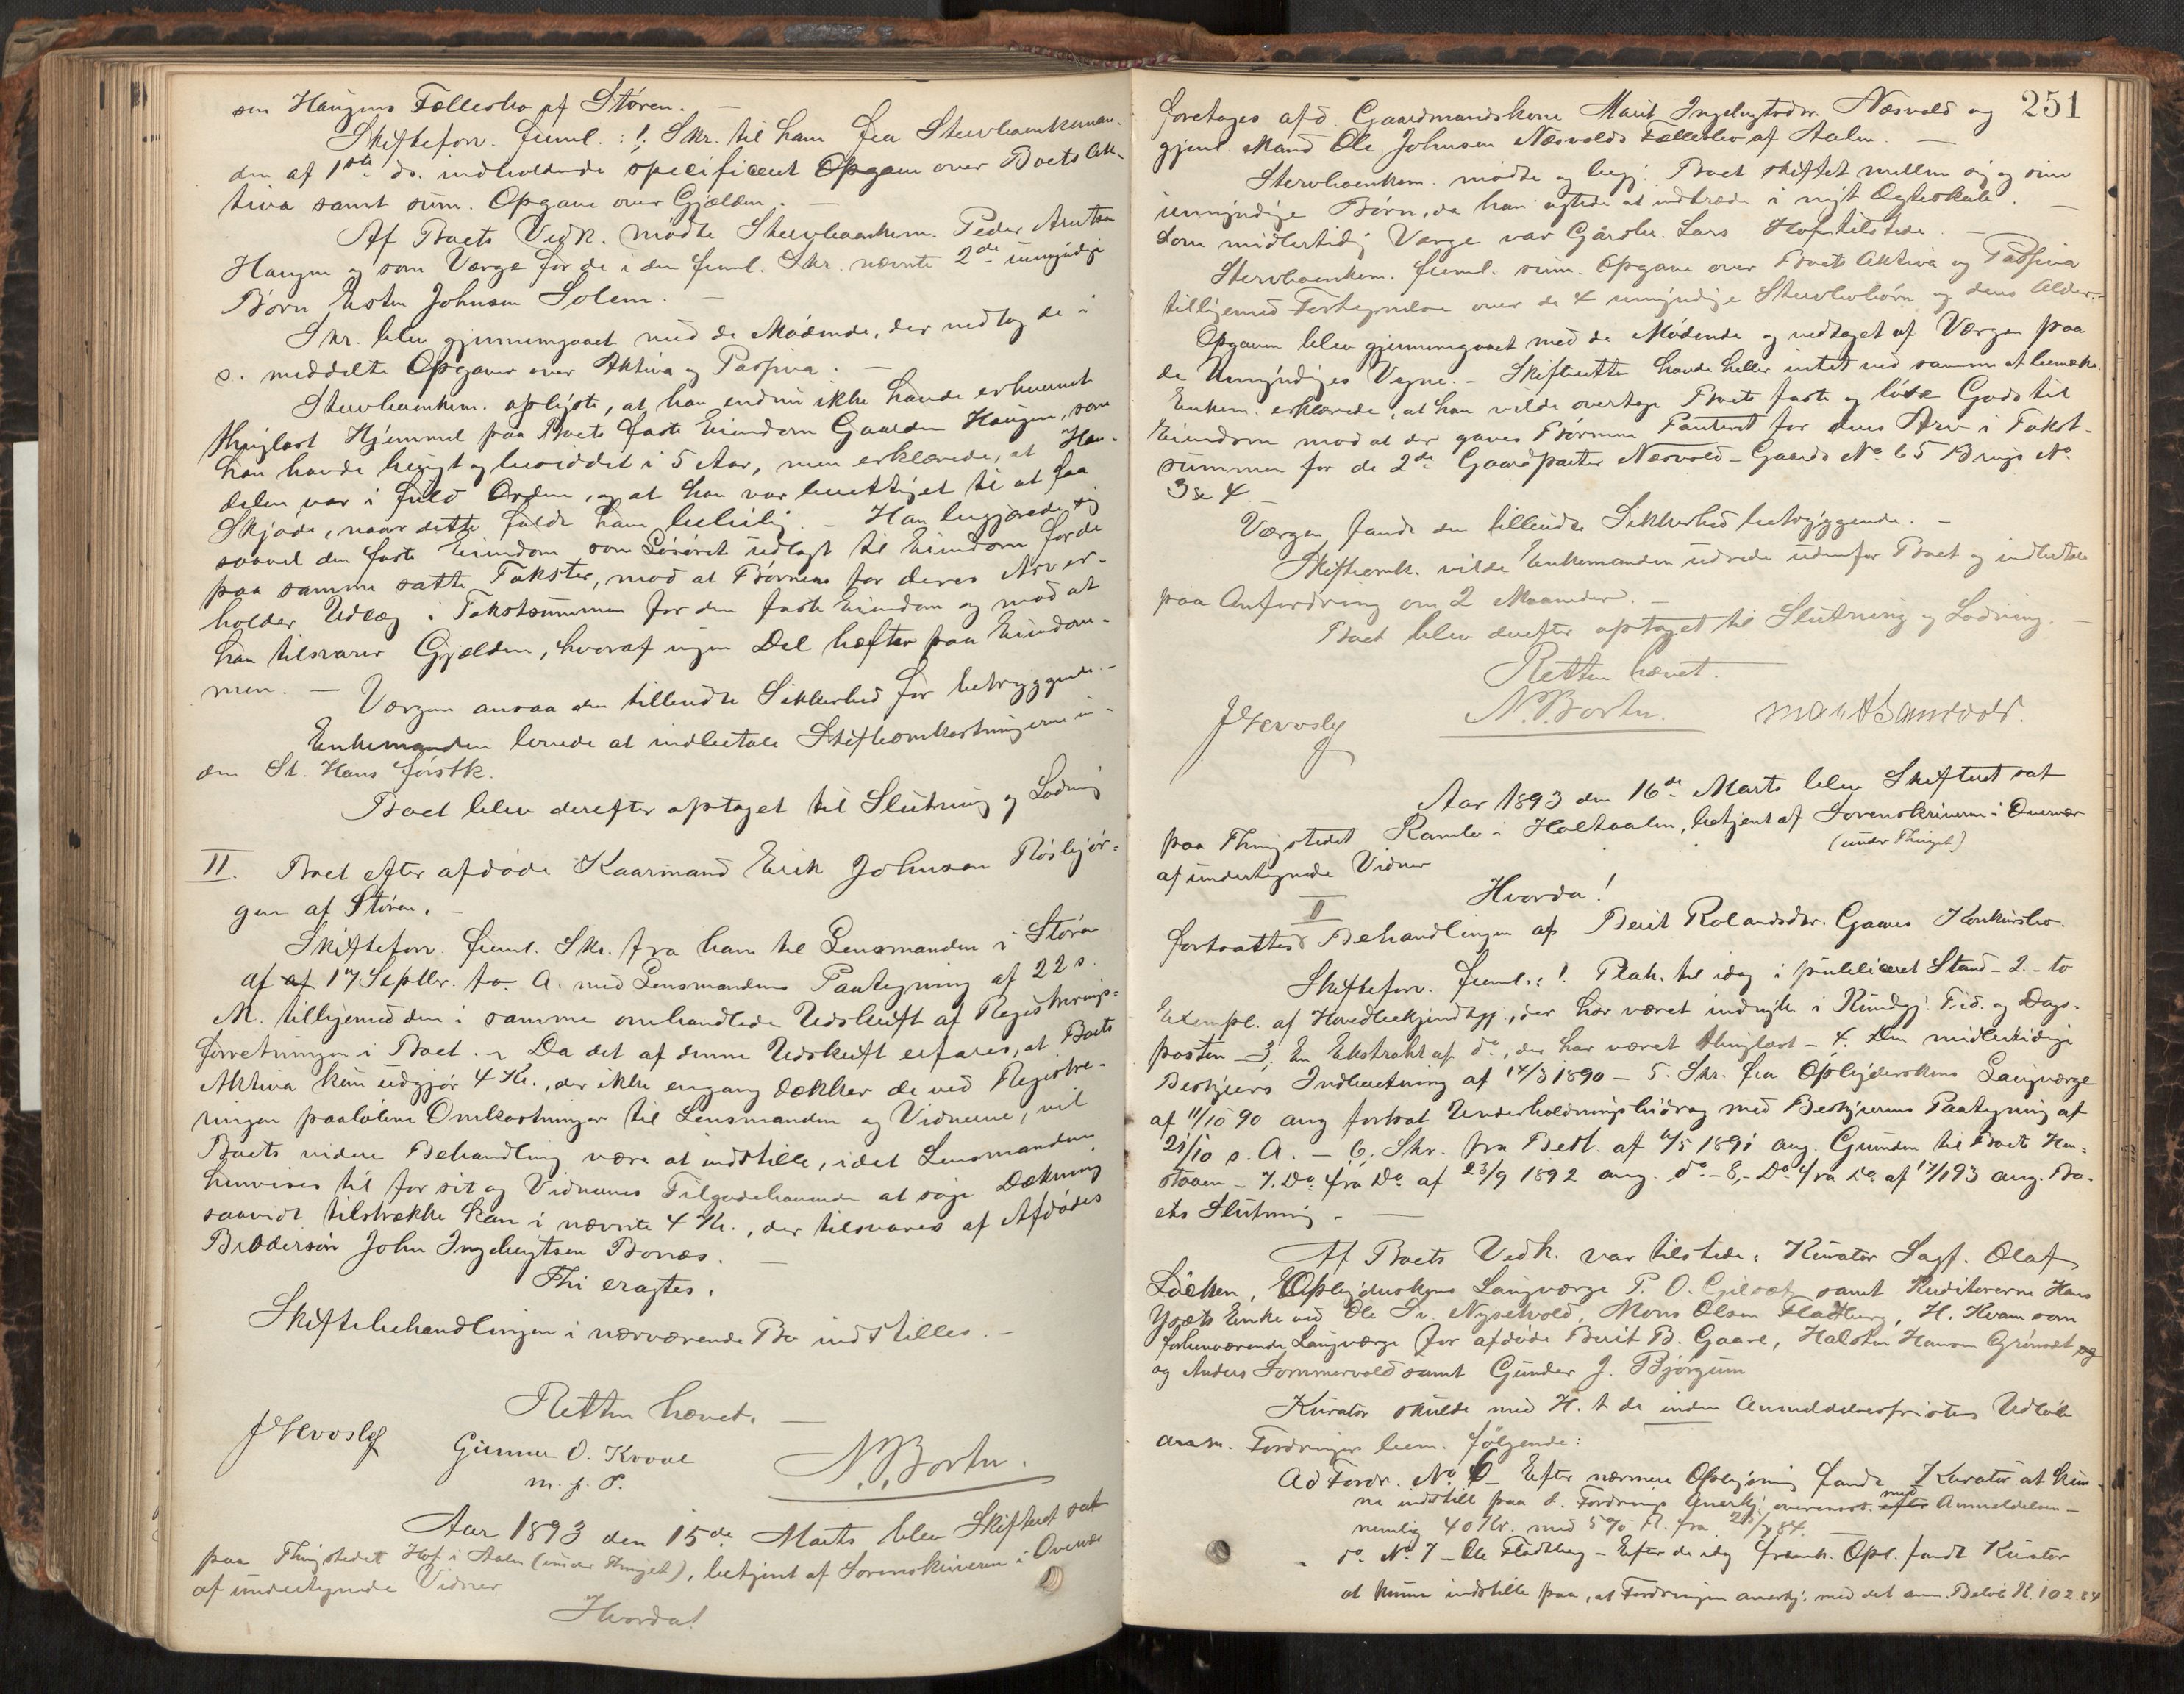 sen Haugens Fællesbo af Støren. —
Skifteforv. freml. : 1. Skr. til ham fra Stervboenkeman-
den af 1ste ds. indholdende specificeret Opgave over Boets Ak-
tiva samt sum. Opgave over Gjælden. —
Af Boets Vedk. mødte Stervboenkem. Peder Arntsen
Haugen og som Værge for de i den freml. Skr. nævnte 2de umyndige
Børn Esten Johnsen Solem. —
Skr. blev gjennemgaaet med de Mødende, der vedtog de i
s. meddelte Opgaver over Aktiva og Passiva. —
Stervboenkem. oplyste, at han endnu ikke havde erhvervet
thinglæst Hjemmel paa Boets faste Eiendom Gaarden Haugen, som
han havde bygt og besiddet i 5 Aar, men erklærede, at Han-
delen var i fuld Orden, og at han var berettiget til at faa
Skjøde, naar dette faldt ham beleilig. — Han begjærede sig
saavel den faste Eiendom som Løsøret udlagt til Eiendom for de
paa samme satte Takster, mod at Børnene for deres Arv er-
holder Udlæg i Takstsummen for den faste Eiendom og mod at
han tilsvarer Gjælden, hvoraf ingen Del hefter paa Eiendom-
men. — Værgen ansaa den tilbudte Sikkerhed for betryggende. —
Enkemanden lovede at indbetale Skifteomkostningerne in-
den St. Hans førstk.
Boet blev derefter optaget til Slutning og Lodning
II. Boet efter afdøde Kaarmand Erik Johnsen Rösbjør-
gen af Støren. —
Skifteforv. freml. Skr. fra ham til Lensmanden i Støren
af af 17 Septbr. f. A. med Lensmandens Paategning af 22 s.
M. tilligemed den i samme omhandlede Udskrift af Registrerings-
forretningen i Boet. — Da det af denne Udskrift erfares, at Boets
Aktiva kun udgjør 4 Kr., der ikke engang dækker de ved Registre-
ringen paaløbne Omkostninger til Lensmanden og Vidnerne, vil
Boets videre Behandling være at indstille, idet Lensmanden
henvises til for sit og Vidnernes Tilgodehavende at søge Dækning
saavidt tilstrække kan i nævnte 4 Kr., der tilsvares af Afdødes
Brodersøn John Ingebrigtsen Bones. —
Thi eragtes:
Skiftebehandlingen i nærværende Bo indstilles. —
Retten hævet. —
Gunner O. Krovel
m. p. P.
N. Borten.
Aar 1893 den 15de Marts blev Skifteret sat
paa Thingstedet Hof i Aalen (under Thinget), betjent af Sorenskriveren i Overvær
af undertegnede Vidner
Hvorda!
251
foretoges afd. Gaardmandskone Marit Ingebrigtsdtr. Næsvold og
gjenl. Mand Ole Johnsen Næsvolds Fællesbo af Aalen. —
Stervboenkem. mødte og begj. Boet skiftet mellem sig og sine
umyndige Børn, da han agtede at indtræde i nyt Ægteskab. —
Som midlertidig Værge var Gårdbr. Lars Hof tilstede. —
Stervboenkem. freml. sum. Opgave over Boets Aktiva og Passiva
tilligemed Fortegnelse over de 4 umyndige Stervbobørn og deres Alder. —
Opgaven blev gjennemgaaet med de Mødende og vedtaget af Værgen paa
de Umyndiges Vegne. — Skifteretten havde heller intet ved samme at bemærke.
Enkem. erklærede, at han vilde overtage Boets faste og løse Gods til
Eiendom mod at der gaves Børnene Panteret for deres Arv i Takst-
summen for de 2de Gaardparter Næsvold – Gaards No 65 Brugs No
3 & 4. —
Værgen fandt den tilbudte Sikkerhed betryggende. —
Skifteomk. vilde Enkemanden udrede udenfor Boet og indbetale
paa Anfordring om 2 Maaneder. —
Boet blev derefter optaget til Slutning og Lodning. —
Retten hævet.
N. Borten.
Aar 1893 den 16de Marts blev Skifteret sat
paa Thingstedet Ramlo i Holtaalen, betjent af Sorenskriveren i Overvær
(under Thinget)
af undertegnede Vidner
Hvorda!
II
fortsattes Behandlingen af Berit Rolandsdtr. Gaares Konkursbo.
Skifteforv. freml.: 1. Plak. til idag i publiceret Stand – 2. – to
Exempl. af Hovedbekjendtgj., der har været indrykket i Kundgj. Tid. og Dags-
posten – 3. En Ekstrakt af do, der har været thinglæst – 4. Den midlertidige
Bestyrers Indberetning af 14/3 1890 – 5. Skr. fra Opbyderskens Laugværge
af 11/10 90 ang. fortsat Underholdningsbidrag med Bestyrerens Paategning af
21/10 s. A. – 6. Skr. fra Best. af 6/5 1891 ang. Grunden til Boets Hen-
staaen – 7. Do fra Do af 23/9 1892 ang. do – 8. – Do fra Do af 17/1 93 ang. Bo-
ets Slutning. —
Af Boets Vedk. var tilstede: Kurator Sagf. Olaf
Løcken, Opbyderskens Laugværge P. O. samt Kreditorerne Hans
Ysæts Enke ved Ole Nysetvold, Mons Olsen Fladberg, H. Kvam som
forhenværende Laugværge for afdøde Berit B. Gaare, Halsten Hansen Grønset og
og Anders Sommervold samt Gunder J. Bjørgum
Kurator skulde med H. t. de inden Anmeldelsesfristens Udløb
anm. Fordringer bem. følgende:
Ad Fordr. No 6 – Efter nærmere Oplysning fandt Kurator at kun-
ne indstille paa d. Fordrings Anerkj. overensst. efter med Anmeldelsen —
nemlig 40 Kr. med 5 % fra /7 84. —
do No 7 – Ole Fladberg – Efter de idag fremk. Opl. fandt Kurator
at kunne indstille paa, at Fordringen anerkj. med det anm. Beløb K. 102.84